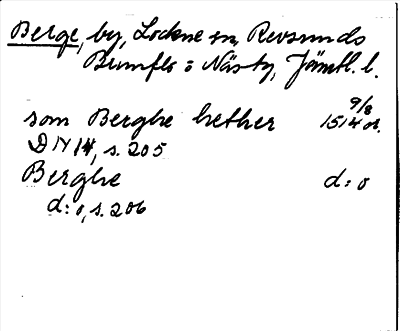 Berge, by, Lockne sn, Revsunds
Brunflo o Nästg, Jämtl. l.
som Berghe hether 9/8 1514 or.
DN 14, s. 205
Berghe d:o
d:o, s. 206